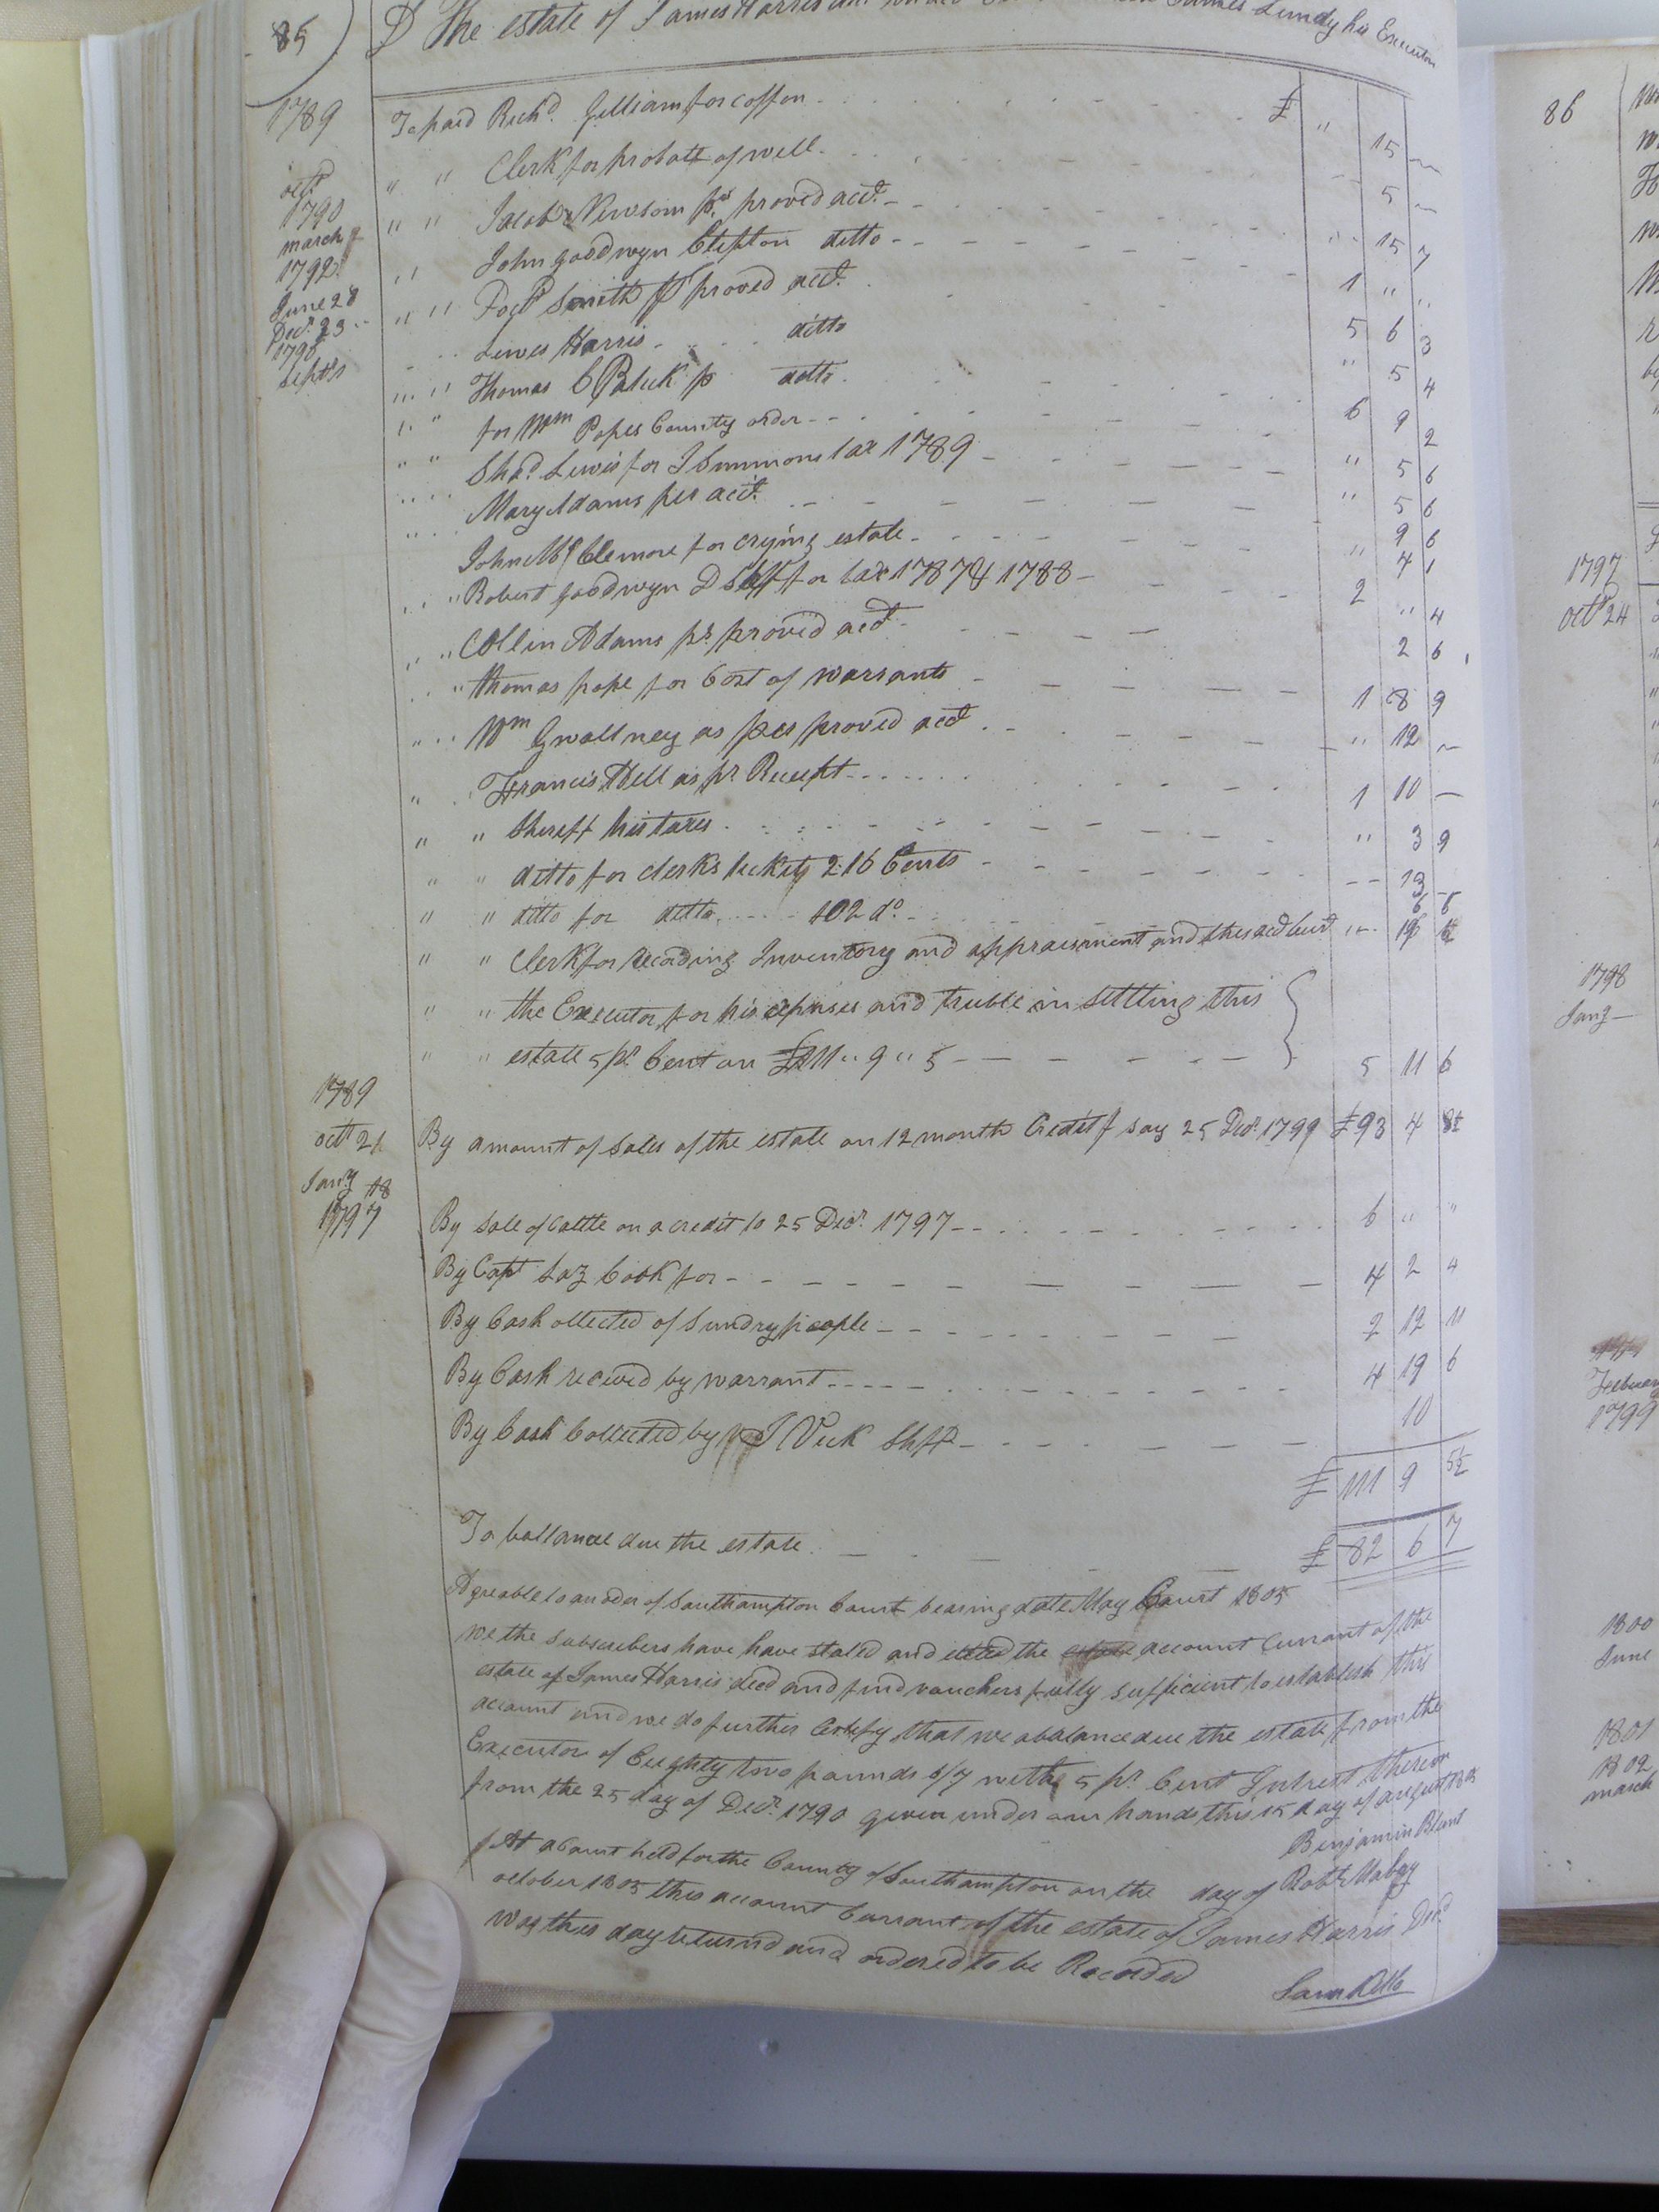 85
Dr The estate of James Harris James Lundy his Executor
1789 To paid Richd. Gilliam for coffon £ " 15 —
octr " " Clerk for probate of will 5 —
1790 " " Jacob Newsom pr proved acct. 15 7
march " John goodwyn Clifton ditto 1 " "
1792 " " Smith pr proved acct. 5 6 3
June 28 Lewes Harris ditto " 5 4
Decr. 23 " " Thomas ditto 6 9 2
1795 " " for Wm Popes County order " 5 6
Septr " " Shad. Lewis for J Simmons tax 1789 " 5 6
" " Mary Adams per acct. 9 6
John McClemore for crying estate " 4 1
" " Robert goodwyn D Shff for tax 1787 & 1788 2 " 4
" " Collin Adams pr. proved acct. 2 6
" " thomas pope for Cost of warrants 1 8 9
" " Wm Gwaltney as per proved acct. " 12 —
" " Francis Hill as pr. Receipt 1 10 —
" " Shereff his taxes " 3 9
" " ditto for clerks tickets 2.16 Cents 13 —
" " ditto for ditto 102 do. 6
" " Clerk for Recording Inventory and appraisment and this acct
" " the Executor for his expenses and truble in Settling this
" " estate 5 pr. Cent on £111 " 9 " 5 5 11 6
1789
octr 21 By amount of Sales of the estate on 12 month Credit say 25 Decr. 1799 £93 4 8½
Jany 18
1797 By Sale of Cattle on a credit to 25 Decr. 1797 6 " "
By Capt book for 4 2 4
By Cash ollected of Sundry people 2 12 11
By Cash recived by warrant 4 19 6
By Cash Collected by J Vick Shff 10
£ 111 9 5½
To ballance due the estate £ 82 6 7
Agreable to an oder of Southampton Court bearing date May Court 1805
we the Subscribers have have stated and the estate account Currant of the
estate of James Harris decd and find vouchers fully sufficient to establish this
account and we do further Certify that we abalance due the estate from the
Executor of Eeighty two pounds 6/7 with 5 pr. Cent Intrest thereon
from the 25 day of Decr. 1790 given under our hands this 15 day of august 1805
Benjamin Blunt
Robt. Mabry
At a Court held for the County of Southampton on the day of
october 1805 this account Currant of the estate of James Harris Decd.
was this day returnd and ordered to be Recorded
Sam Kello
86
1797
octr 24
1798
Jany —
February
1799
1800
June
1801
1802
march